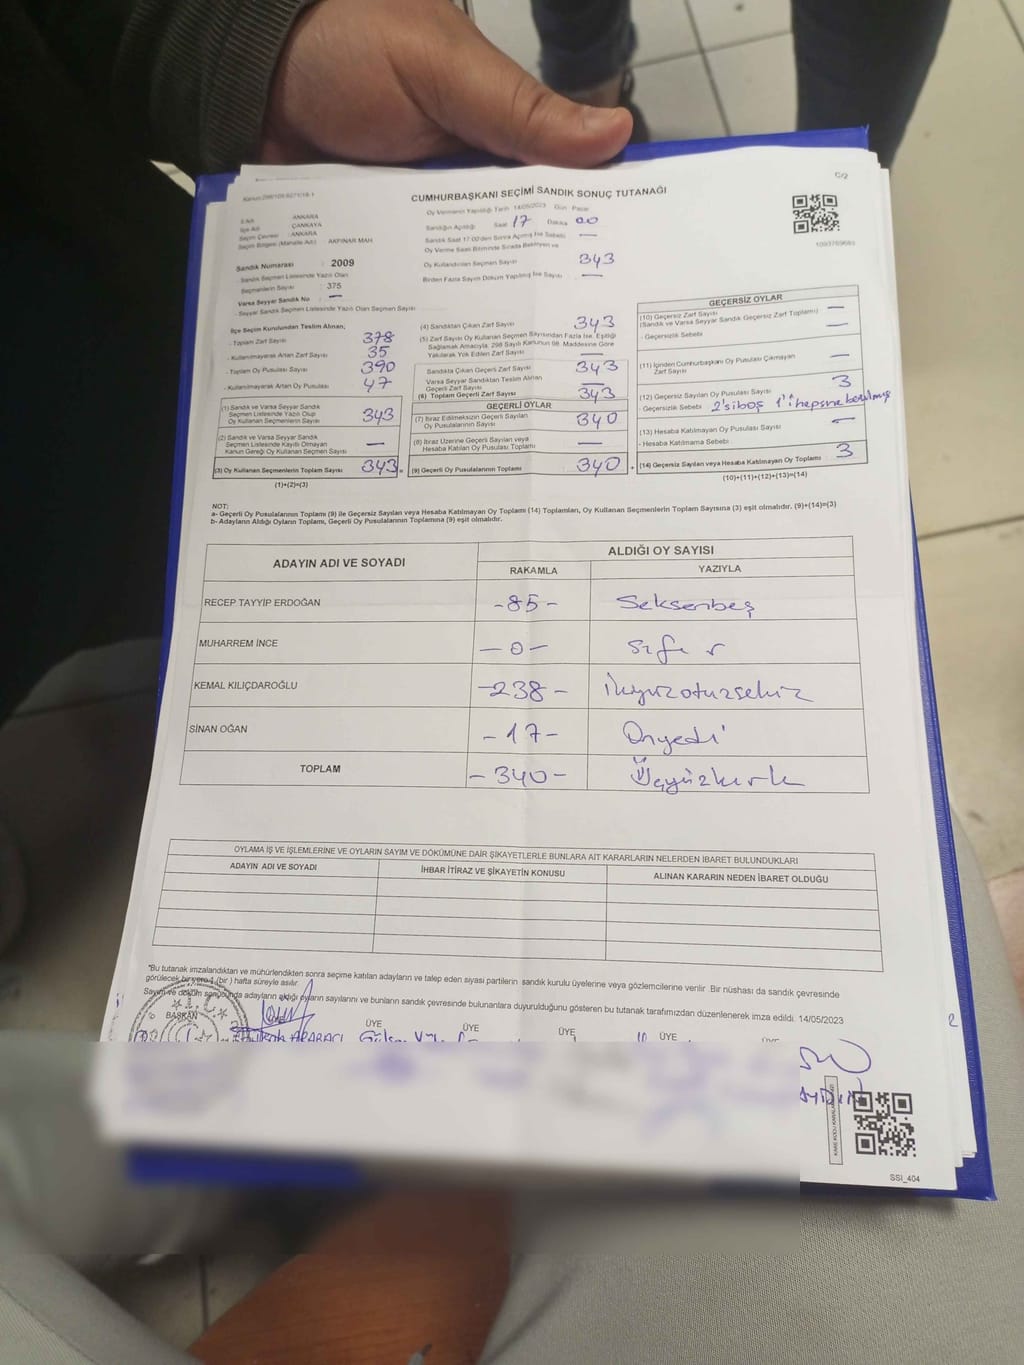 C/2
CUMHURBAŞKANI SEÇİMİ SANDIK SONUÇ TUTANAĞI
İl Adı : ANKARA
İlçe Adı : ÇANKAYA
Seçim Çevresi : ANKARA
Seçim Bölgesi (Mahalle Adı) : AKPINAR MAH
Sandık Numarası : 2009
Sandık Seçmen Listesinde Yazılı Olan
Seçmenlerin Sayısı : 375
Varsa Seyyar Sandık No : —
- Seyyar Sandık Seçmen Listesinde Yazılı Olan Seçmen Sayısı
Oy Vermenin Yapıldığı Tarih 14/05/2023 Gün : Pazar
Sandığın Açıldığı Saat 17 Dakika 00
Sandık Saat 17:00'den Sonra Açılmış İse Sebebi —
Oy Verme Saati Bitiminde Sırada Bekleyen ve
Oy Kullandırılan Seçmen Sayısı 343
Birden Fazla Sayım Döküm Yapılmış İse Sayısı —
İlçe Seçim Kurulundan Teslim Alınan;
- Toplam Zarf Sayısı 378
- Kullanılmayarak Artan Zarf Sayısı 35
- Toplam Oy Pusulası Sayısı 390
- Kullanılmayarak Artan Oy Pusulası 47
(1) Sandık ve Varsa Seyyar Sandık
Seçmen Listesinde Yazılı Olup
Oy Kullanan Seçmenlerin Sayısı 343
(2) Sandık ve Varsa Seyyar Sandık
Seçmen Listesinde Kayıtlı Olmayan
Kanun Gereği Oy Kullanan Seçmen Sayısı —
(3) Oy Kullanan Seçmenlerin Toplam Sayısı 343 =
(1)+(2)=(3)
(4) Sandıktan Çıkan Zarf Sayısı 343
(5) Zarf Sayısı Oy Kullanan Seçmen Sayısından Fazla İse, Eşitliği
Sağlamak Amacıyla, 298 Sayılı Kanunun 98. Maddesine Göre
Yakılarak Yok Edilen Zarf Sayısı —
Sandıkta Çıkan Geçerli Zarf Sayısı 343
Varsa Seyyar Sandıktan Teslim Alınan
Geçerli Zarf Sayısı —
(6) Toplam Geçerli Zarf Sayısı 343
GEÇERLİ OYLAR
(7) İtiraz Edilmeksizin Geçerli Sayılan
Oy Pusulalarının Sayısı 340
(8) İtiraz Üzerine Geçerli Sayılan veya
Hesaba Katılan Oy Pusulası Toplamı —
(9) Geçerli Oy Pusulalarının Toplamı 340 +
GEÇERSİZ OYLAR
(10) Geçersiz Zarf Sayısı —
(Sandık ve Varsa Seyyar Sandık Geçersiz Zarf Toplamı)
- Geçersizlik Sebebi —
(11) İçinden Cumhurbaşkanı Oy Pusulası Çıkmayan
Zarf Sayısı —
(12) Geçersiz Sayılan Oy Pusulası Sayısı 3
- Geçersizlik Sebebi 2'si boş 1'i hepsine basılmış
(13) Hesaba Katılmayan Oy Pusulası Sayısı —
- Hesaba Katılmama Sebebi
(14) Geçersiz Sayılan veya Hesaba Katılmayan Oy Toplamı 3
(10)+(11)+(12)+(13)=(14)
NOT:
a- Geçerli Oy Pusulalarının Toplamı (9) ile Geçersiz Sayılan veya Hesaba Katılmayan Oy Toplamı (14) Toplamları, Oy Kullanan Seçmenlerin Toplam Sayısına (3) eşit olmalıdır. (9)+(14)=(3)
b- Adayların Aldığı Oyların Toplamı, Geçerli Oy Pusulalarının Toplamına (9) eşit olmalıdır.
ADAYIN ADI VE SOYADI ALDIĞI OY SAYISI
RAKAMLA YAZIYLA
RECEP TAYYİP ERDOĞAN -85- Seksenbeş
MUHARREM İNCE -0- Sıfır
KEMAL KILIÇDAROĞLU -238- İkiyüzotuzsekiz
SİNAN OĞAN -17- Onyedi
TOPLAM -340- Üçyüzkırk
OYLAMA İŞ VE İŞLEMLERİNE VE OYLARIN SAYIM VE DÖKÜMÜNE DAİR ŞİKAYETLERLE BUNLARA AİT KARARLARIN NELERDEN İBARET BULUNDUKLARI
ADAYIN ADI VE SOYADI İHBAR İTİRAZ VE ŞİKAYETİN KONUSU ALINAN KARARIN NEDEN İBARET OLDUĞU
"Bu tutanak imzalandıktan ve mühürlendikten sonra seçime katılan adayların ve talep eden siyasi partilerin sandık kurulu üyelerine veya gözlemcilerine verilir. Bir nüshası da sandık çevresinde
görülecek bir yere 1 (bir) hafta süreyle asılır.
Sayım ve döküm sonucunda adayların aldığı oyların sayılarını ve bunların sandık çevresinde bulunanlara duyurulduğunu gösteren bu tutanak tarafımızdan düzenlenerek imza edildi. 14/05/2023
BAŞKAN ÜYE ÜYE ÜYE ÜYE
T.C.
2
SSI_404